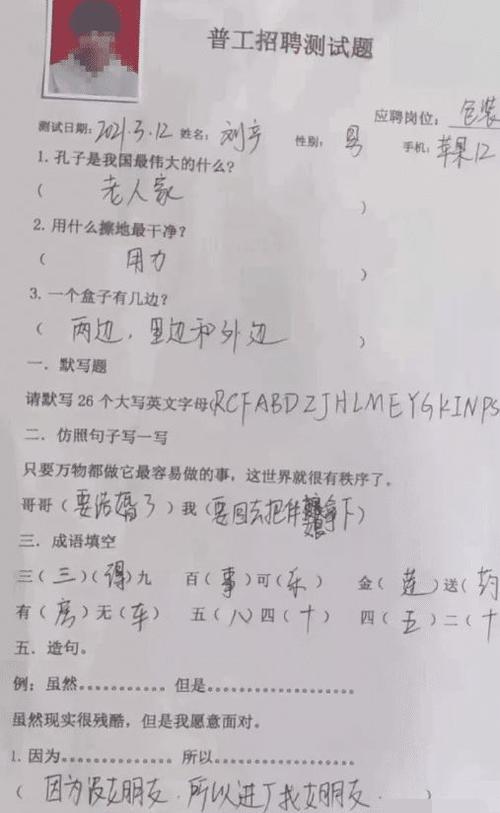 普工招聘测试题
应聘岗位: 包装
测试日期: 2021.3.12 姓名: 刘宇 性别: 男 手机: 苹果12
1. 孔子是我国最伟大的什么?
( 老人家 )
2. 用什么擦地最干净?
( 用力 )
3. 一个盒子有几边?
( 两边, 里边和外边 )
一. 默写题
请默写 26 个大写英文字母(RCFABDZJHLMEYGKINPS
二. 仿照句子写一写
只要万物都做它最容易做的事，这世界就很有秩序了。
哥哥 ( 要结婚了 ) 我 ( 要回去把伴娘拿下 )
三. 成语填空
三 ( 三 ) ( 得 ) 九 百 ( 事 ) 可 ( 乐 ) 金 ( 莲 ) 送 ( 药
有 ( 房 ) 无 ( 车 ) 五 ( 八 ) 四 ( 十 ) 四 ( 五 ) 二 ( 十
五. 造句。
例: 虽然............ 但是....................
虽然现实很残酷，但是我愿意面对。
1. 因为.............. 所以....................
( 因为没女朋友. 所以进厂找女朋友. )